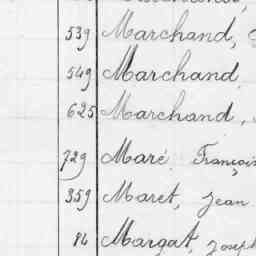 539 Marchand,
549 Marchand
625 Marchand,
729 Maré François
359 Maret, Jean
Margat, Joseph